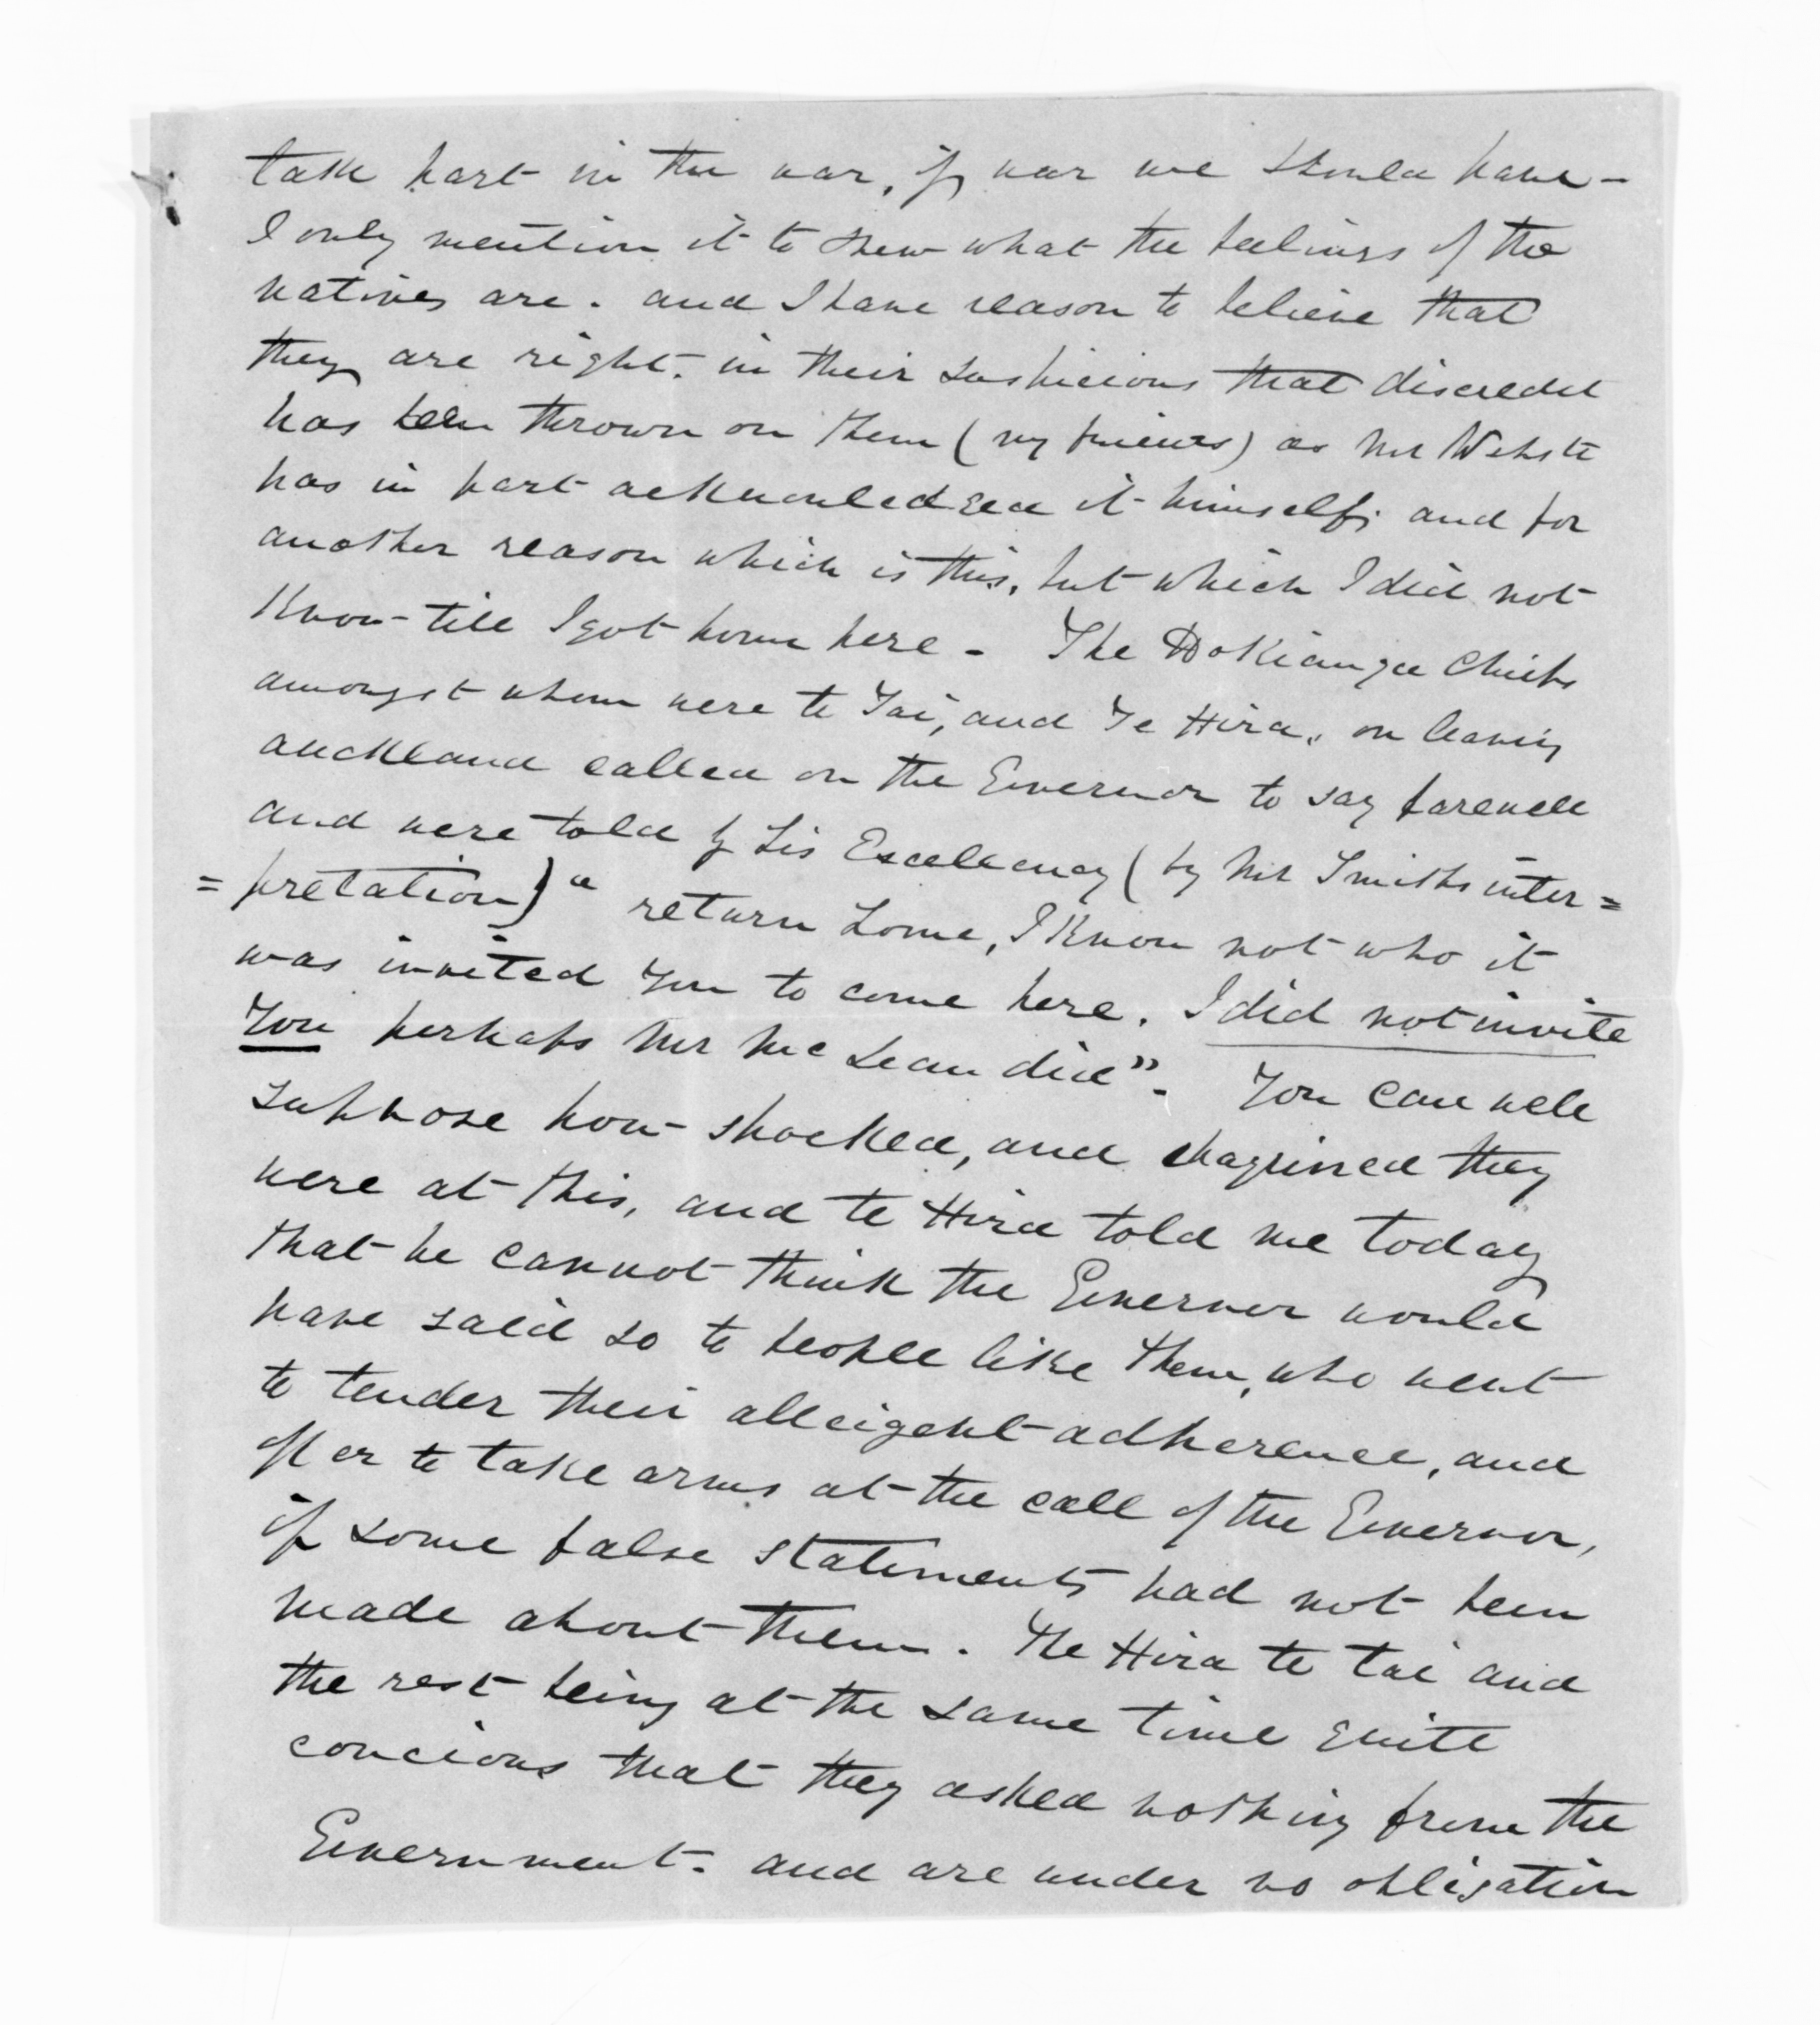 take part in the war, if war we should have -
I only mention it to shew what the feelings of the
natives are. and I have reason to believe that
they are right. in their suspicions that discredit
has been thrown on them (my friends) as Mr Webste
has in part acknowledged it himself; and for
another reason which is this, but which I did not
know till I got home here - The Hokianga Chiefs
amongst whom were te Tai, and Te Hira, on leaving
auckland called on the Governor to say farewell
and were told by His Excellency (by Mr Smiths inter =
= pretation) " return home, I know not who it
was invited you to come here. I did not invite
You perhaps Mr McLean did". You can well
suppose how shocked, and chagrined they
were at this, and te Hira told me today
that he cannot think the Governor would
have said so to people like them, who went
to tender their alleigent adherence, and
offer to take arms at the call of the Governor,
if some false statements had not been
made about them. Te Hira te tai and
the rest being at the same time quite
concious that they asked nothing from the
Government. and are under no obligation